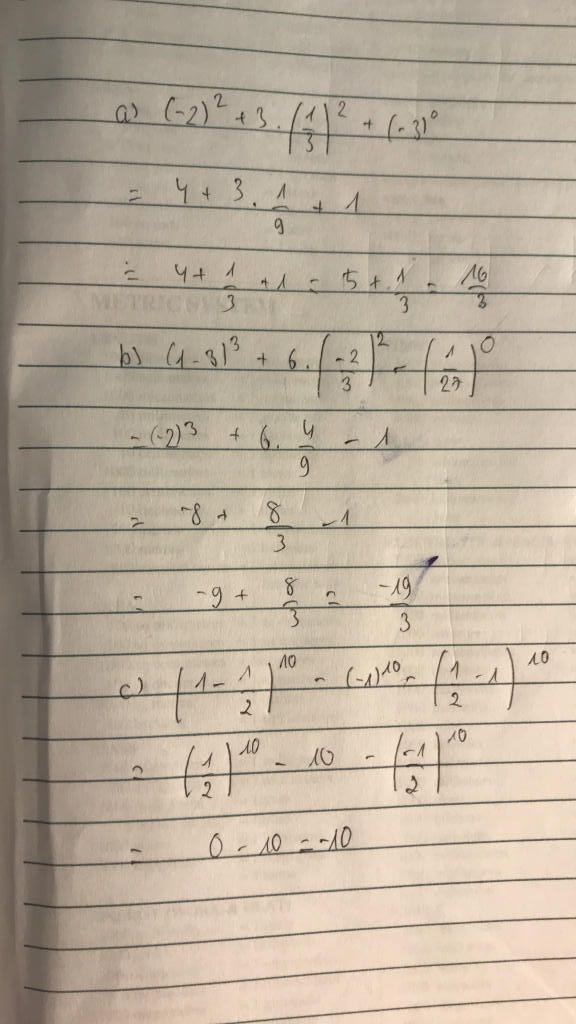 a) (-2)² + 3 · (1/3)² + (-3)⁰
= 4 + 3 · 1/9 + 1
= 4 + 1/3 + 1 = 5 + 1/3 = 16/3
METRIC SYSTEM
b) (1-3)³ + 6 · (-2/3)² - (1/27)⁰
= (-2)³ + 6 · 4/9 - 1
= -8 + 8/3 - 1
= -9 + 8/3 = -19/3
c) (1 - 1/2)¹⁰ - (-1)¹⁰ - (1/2 - 1)¹⁰
= (1/2)¹⁰ - 10 - (-1/2)¹⁰
= 0 - 10 = -10